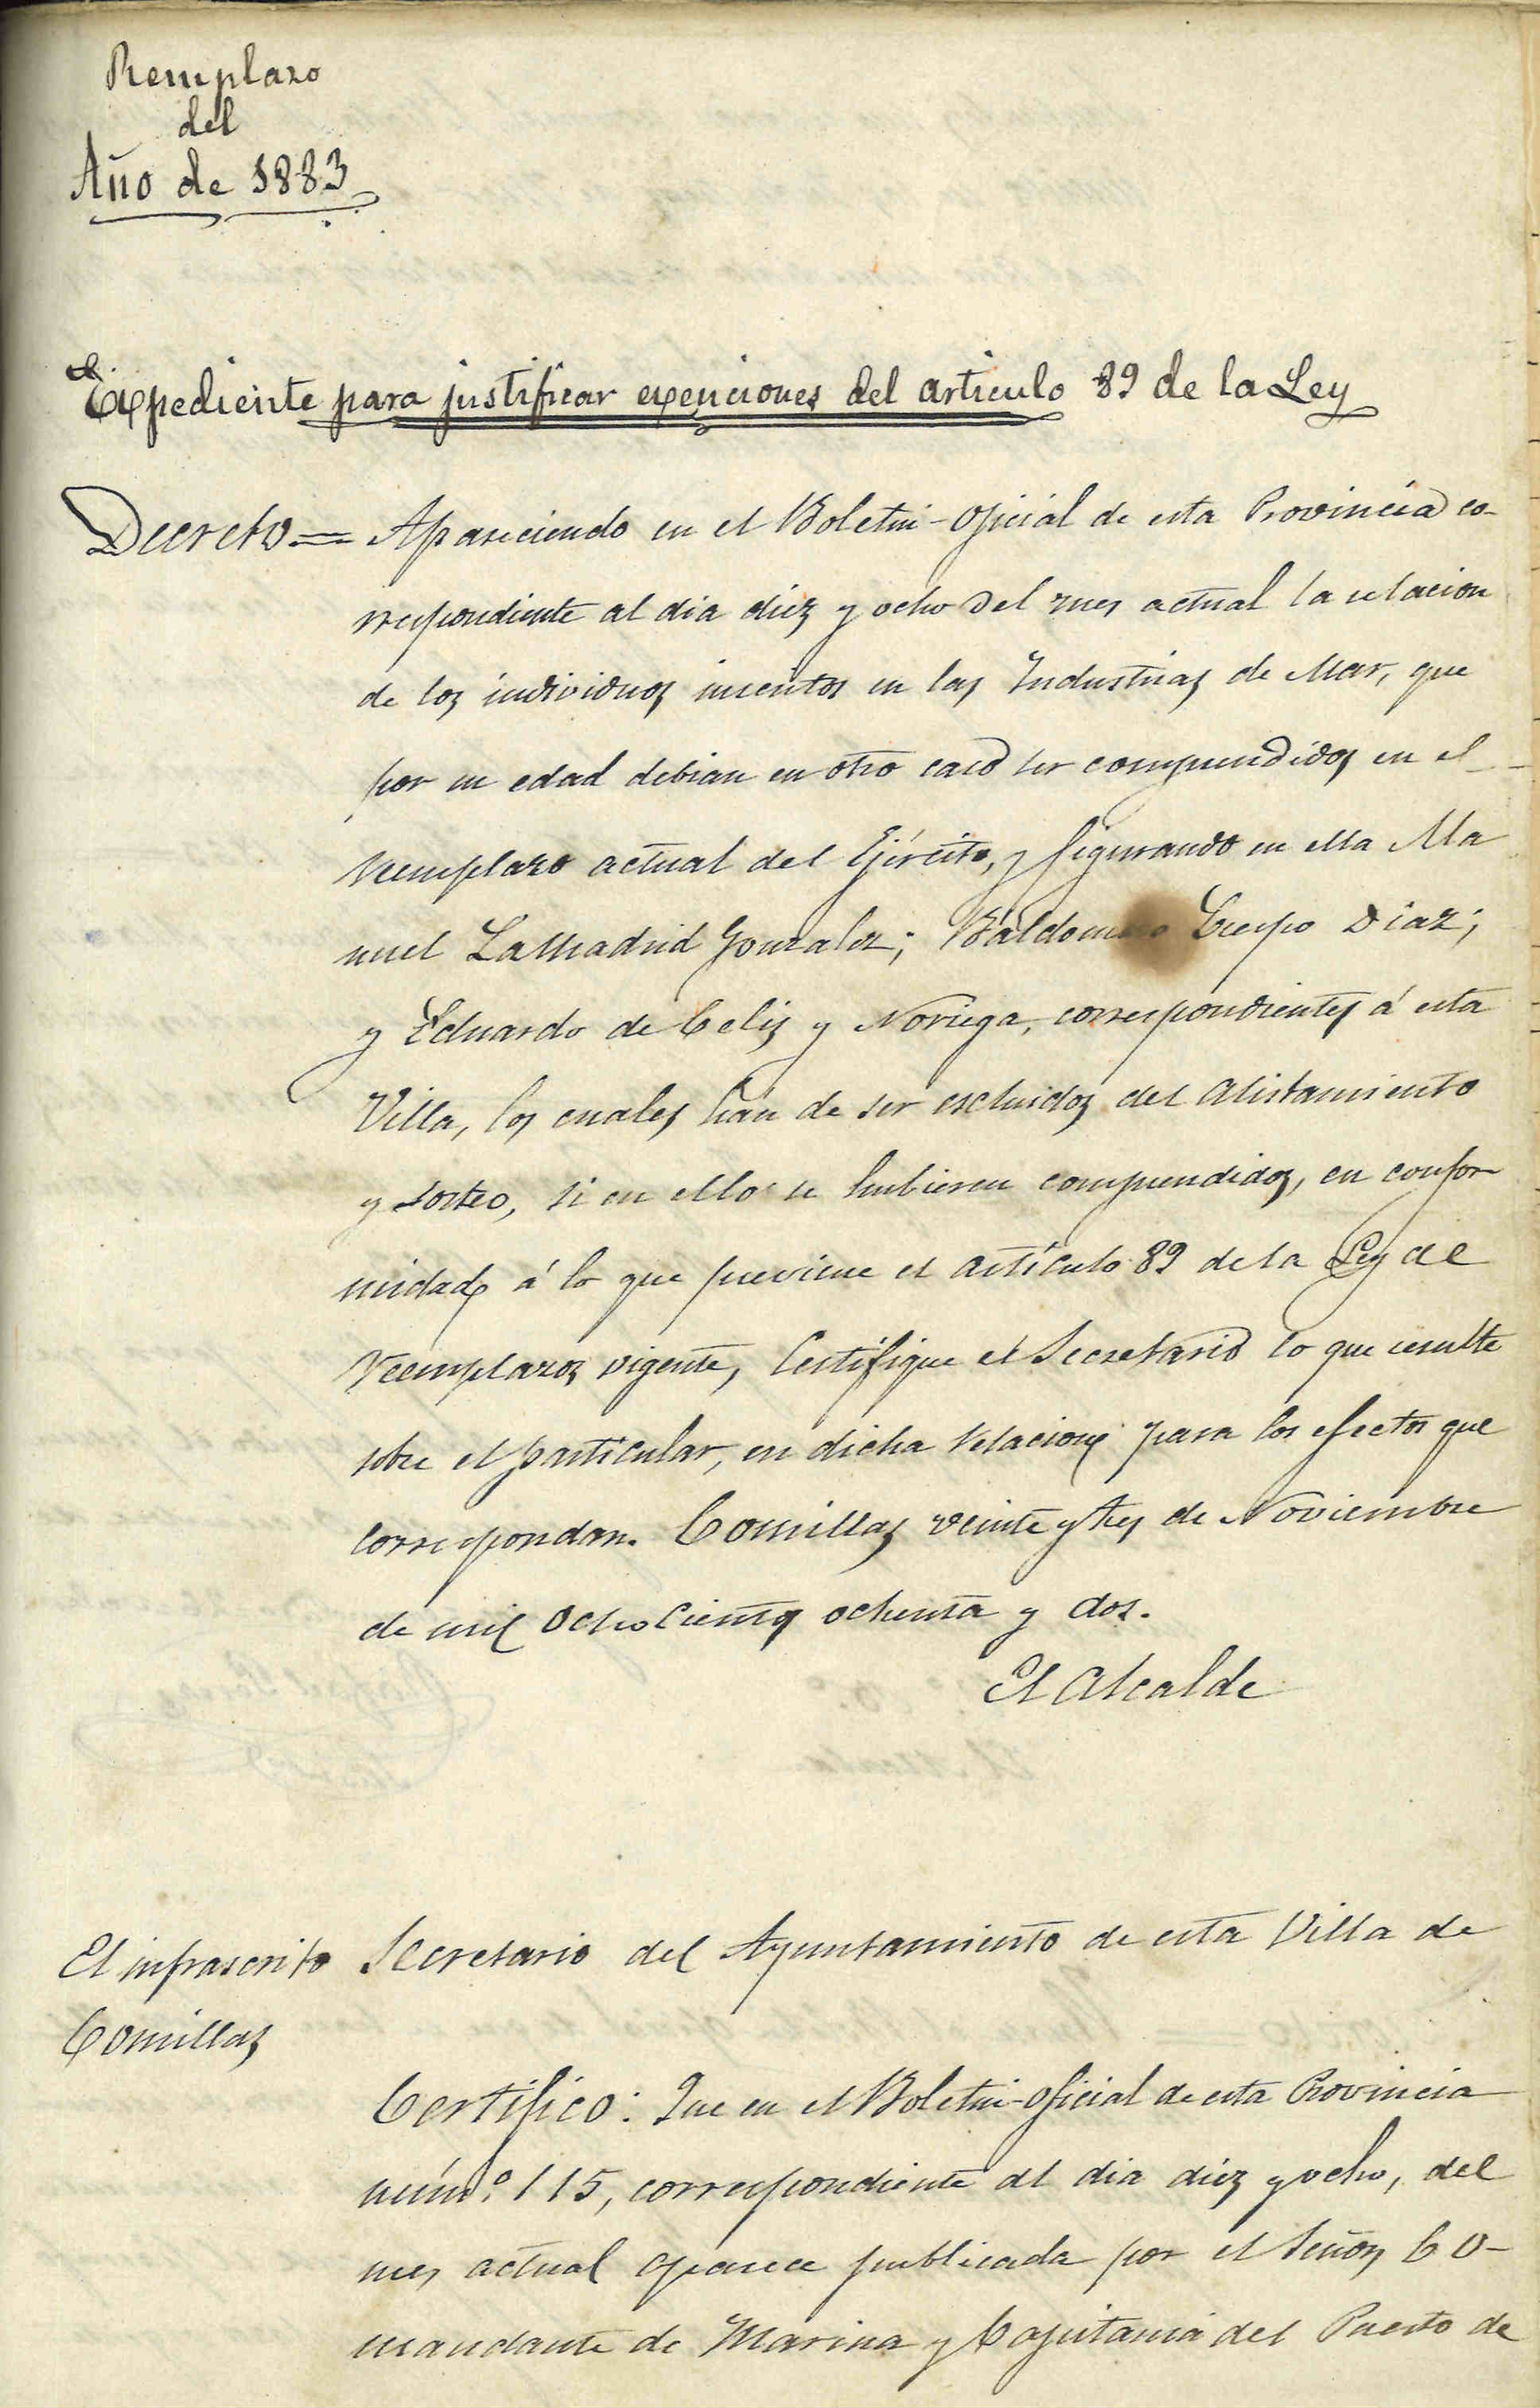 Remplazo
del
Año de 1883
Expediente para justificar exenciones del articulo 89 de la Ley
Decreto = Apareciendo en el Boletin-oficial de esta Provincia co-
rrespondiente al dia diez y ocho del mes actual la relacion
de los individuos inscritos en las Industrias de Mar, que
por su edad debian en otro caso ser comprendidos en el
reemplazo actual del Ejército, y figurando en ella Ma
nuel LaMadrid Gonzalez; Baldomero Crespo Diaz;
y Eduardo de Celis y Noriega, correspondientes á esta
Villa, los cuales han de ser escluidos del alistamiento
y sorteo, si en ello se hubieren comprendidos, en confor
midad á lo que previene el artículo 89 de la Ley de
reemplazos vigente, Certifique el Secretario lo que resulte
sobre el particular, en dicha relacion para los efectos que
correspondan. Comillas veinte y tres de Noviembre
de mil ochocientos ochenta y dos.
El Alcalde
El infrascrito Secretario del Ayuntamiento de esta Villa de
Comillas
Certifico: Que en el Boletin-oficial de esta Provincia
núm.º 115, correspondiente al dia diez y ocho, del
mes actual aparece publicada por el Señor Co-
mandante de Marina y Capitania del Puerto de